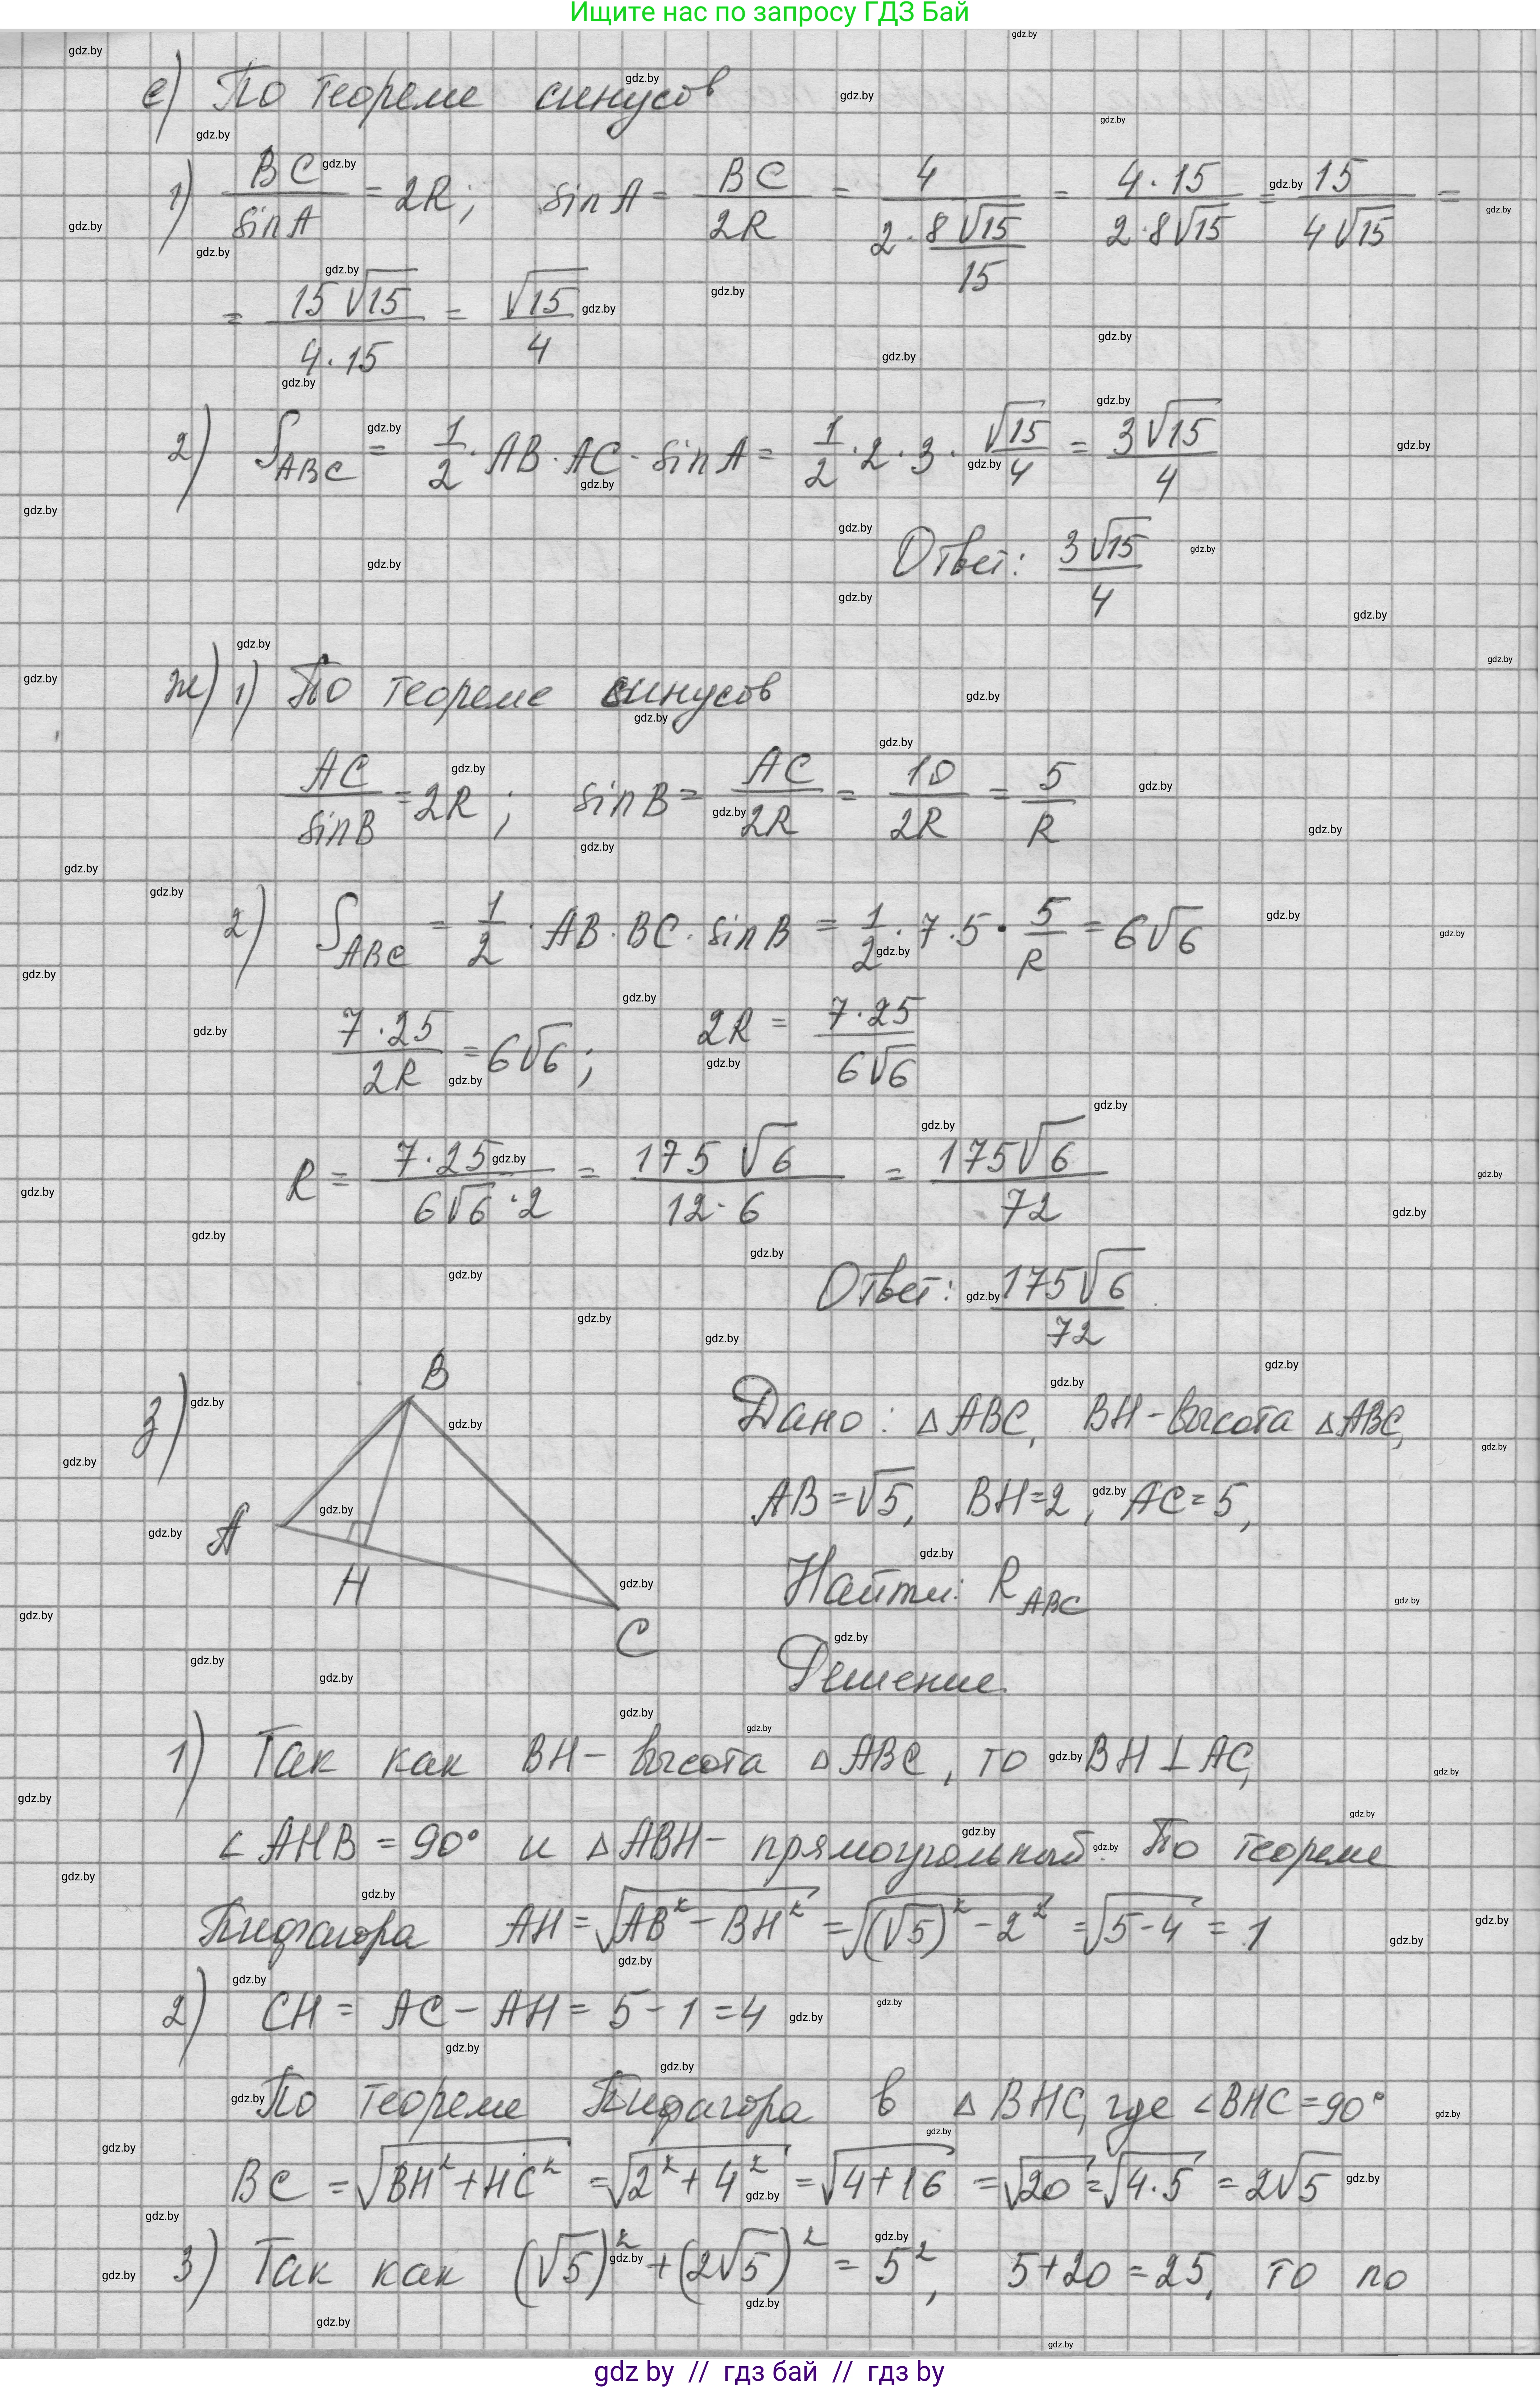 Ищите нас по запросу ГДЗ Бай
е) По теореме синусов
1) BC/sinA = 2R; sinA = BC/2R = 4/(2·8√15/15) = 4·15/(2·8√15) = 15/(4√15) =
= 15√15/(4·15) = √15/4
2) S_ABC = 1/2 · AB · AC · sinA = 1/2 · 2 · 3 · √15/4 = 3√15/4
Ответ: 3√15/4
ж) 1) По теореме синусов
AC/sinB = 2R; sinB = AC/2R = 10/2R = 5/R
2) S_ABC = 1/2 · AB · BC · sinB = 1/2 · 7 · 5 · 5/R = 6√6
7·25/2R = 6√6; 2R = 7·25/6√6
R = 7·25/(6√6·2) = 175√6/(12·6) = 175√6/72
Ответ: 175√6/72
з) B
A
H
C
Дано: △ABC, BH – высота △ABC,
AB = √5, BH = 2, AC = 5,
Найти: R_ABC
Решение.
1) Так как BH – высота △ABC, то BH ⊥ AC,
∠AHB = 90° и △ABH – прямоугольный. По теореме
Пифагора AH = √(AB² − BH²) = √((√5)² − 2²) = √(5−4) = 1
2) CH = AC − AH = 5 − 1 = 4
По теореме Пифагора в △BHC, где ∠BHC = 90°
BC = √(BH² + HC²) = √(2² + 4²) = √(4+16) = √20 = √(4·5) = 2√5
3) Так как (√5)² + (2√5)² = 5², 5+20 = 25, то по
gdz by // гдз бай // гдз by